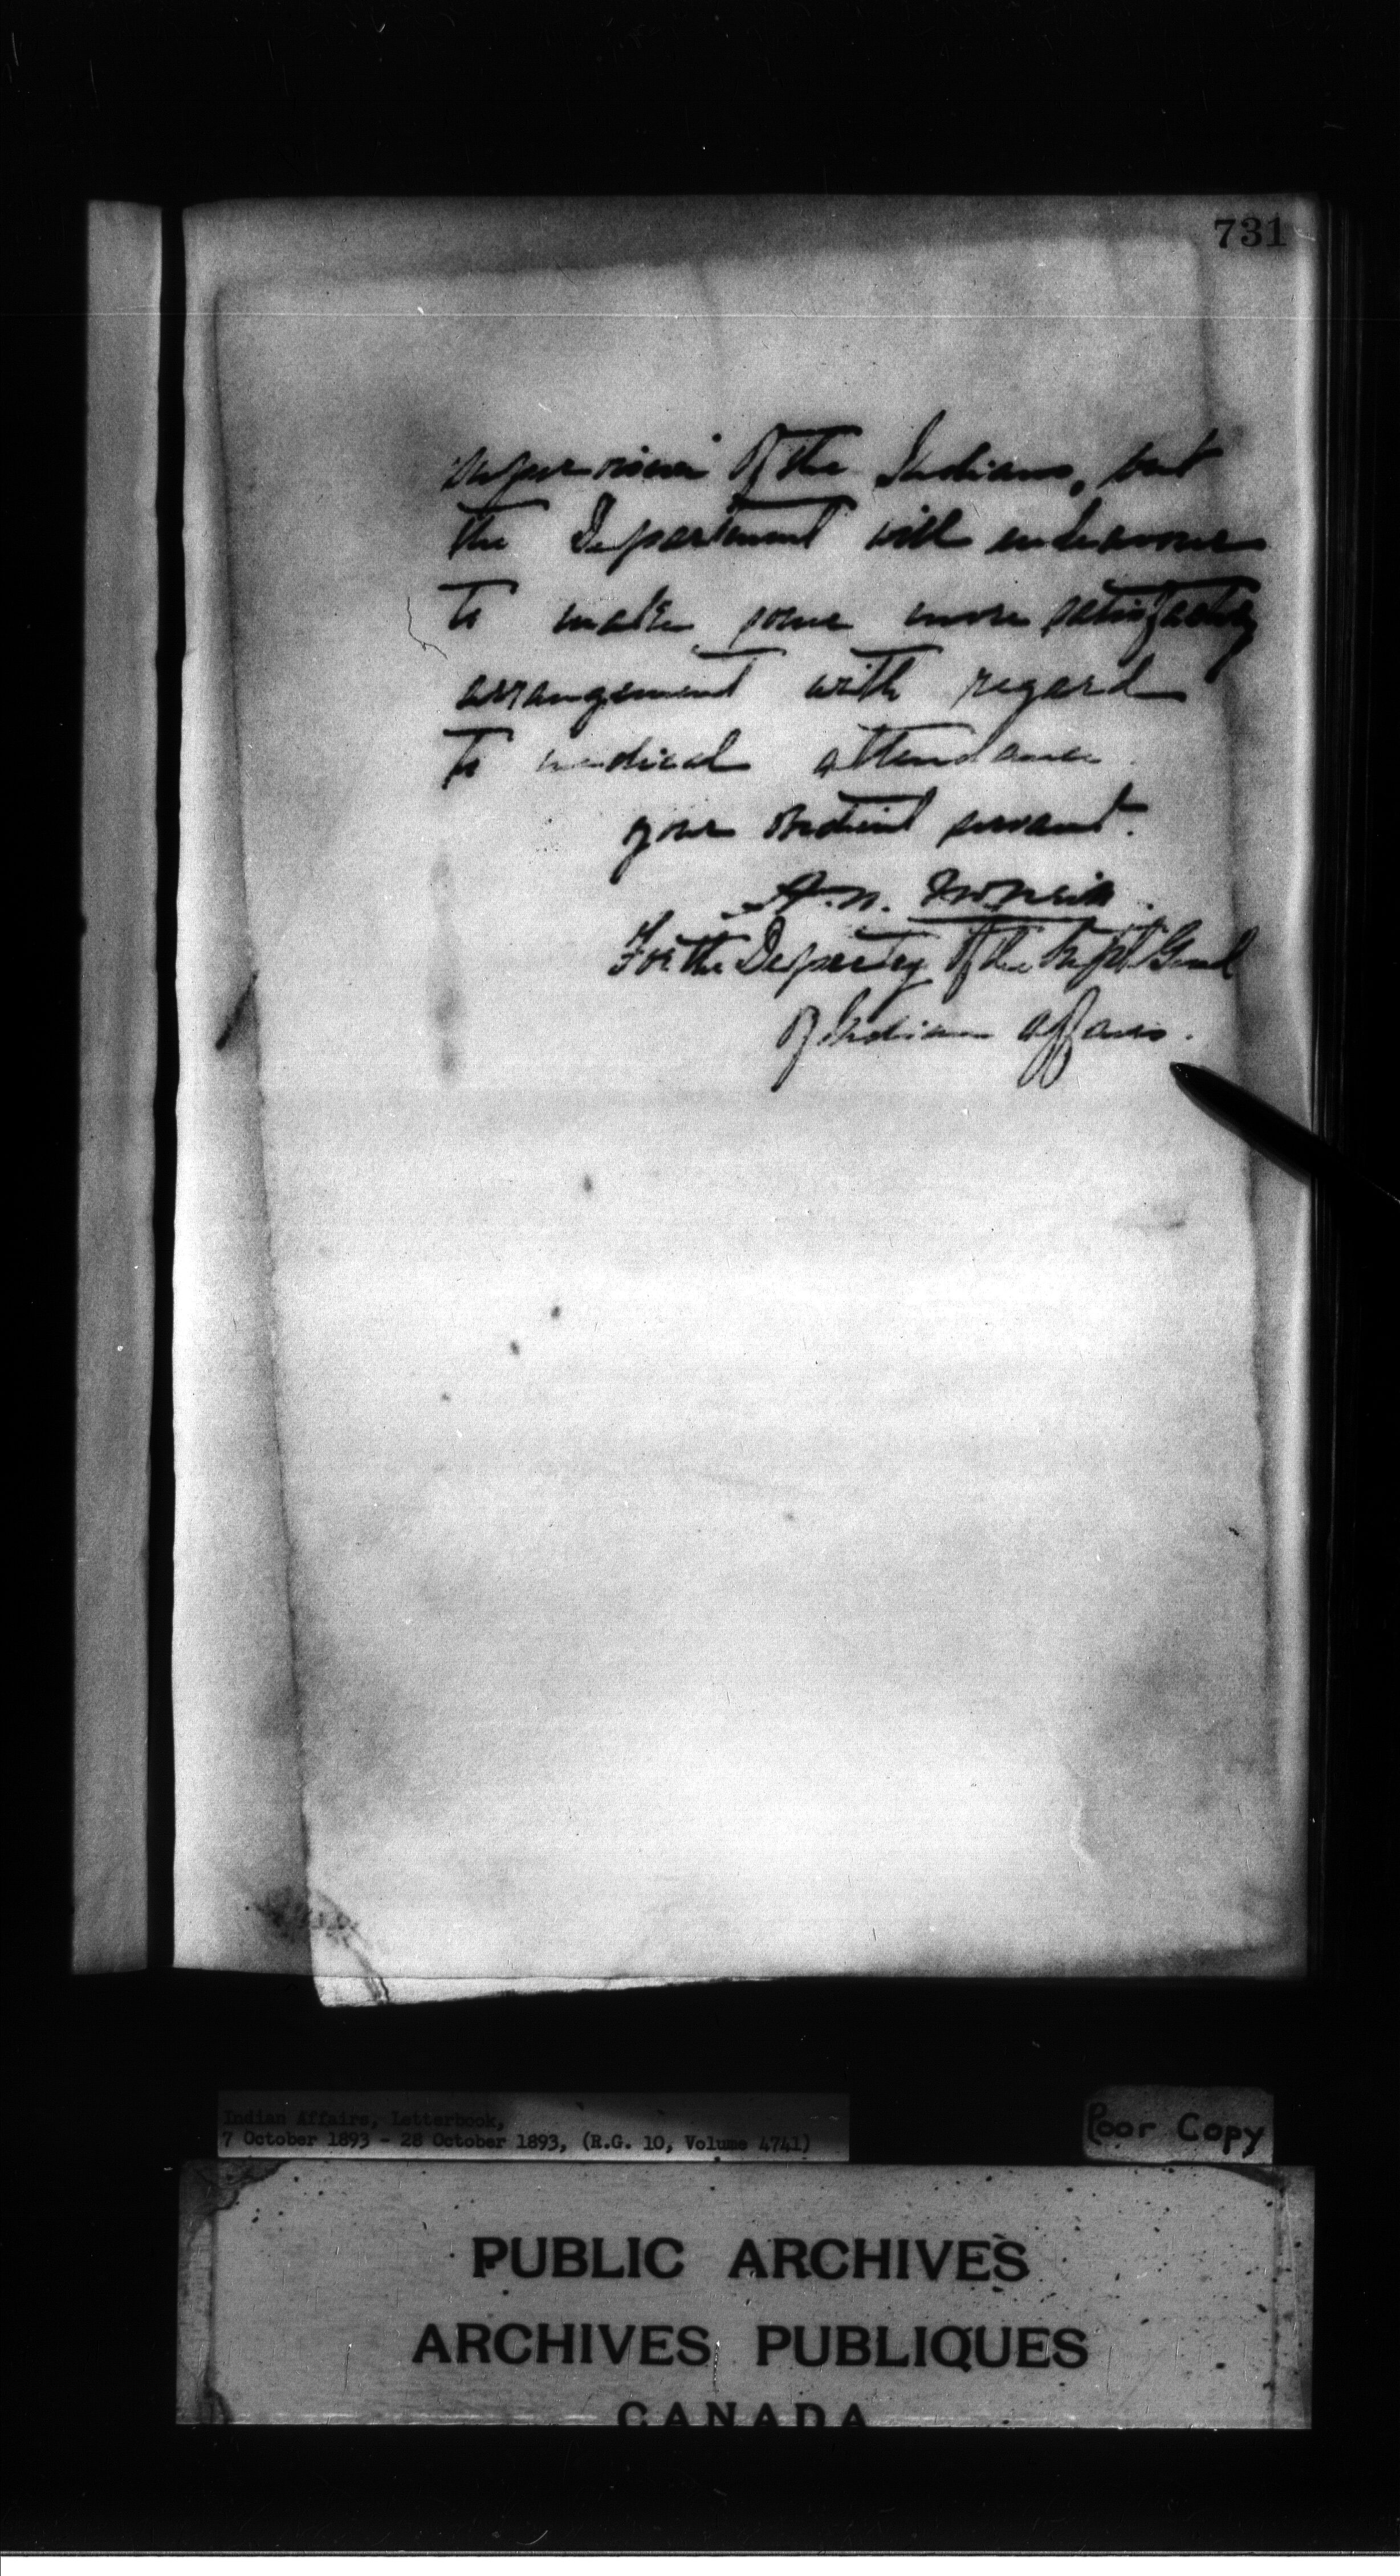 731
supervision of the Indians, but
the Department will endeavour
to make some more satisfactory
arrangement with regard
to medical attendance
your obedient servant.
A. N. McNeill.
For the Deputy of the Supt Genl
of Indian Affairs.
Indian Affairs, Letterbook,
7 October 1893 - 28 October 1893, (R.G. 10, Volume 4741)
Poor Copy
PUBLIC ARCHIVES
ARCHIVES PUBLIQUES
CANADA